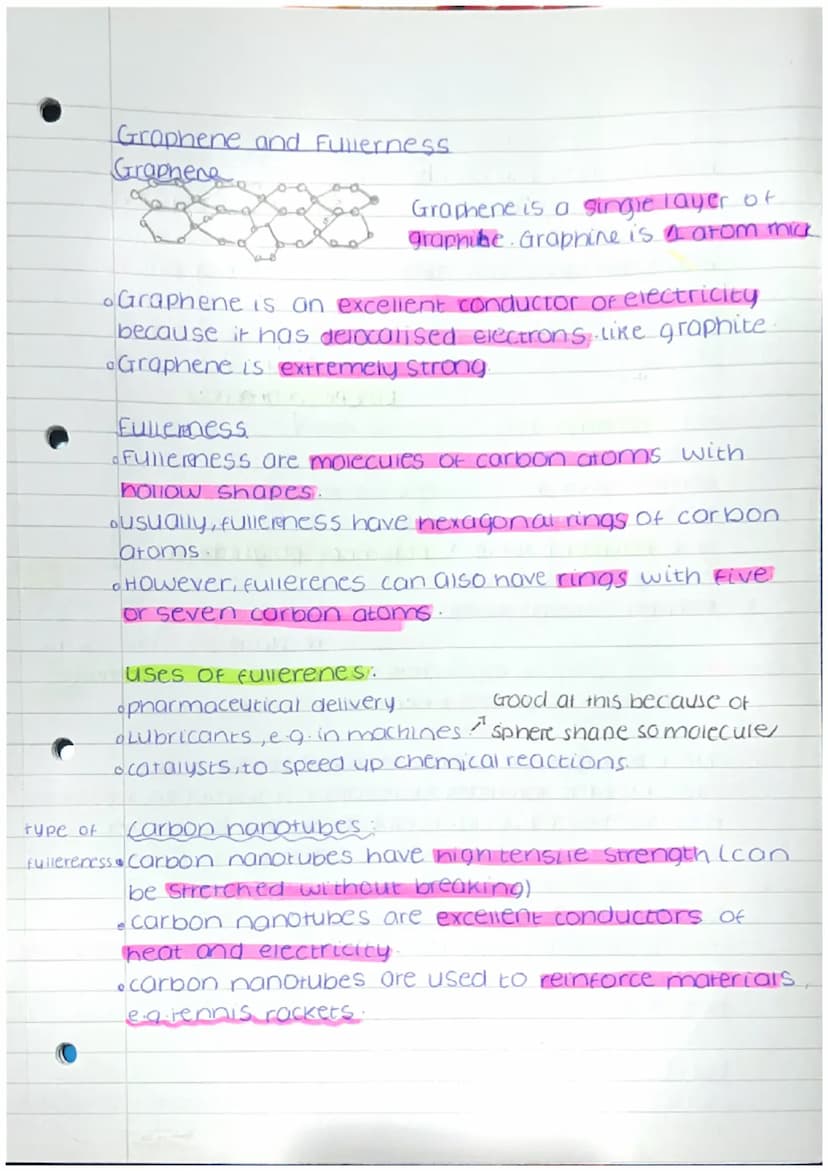 Graphene and Fullerness
Graphene
Graphene is a single layer of
graphite. Graphine is 1 atom thick
Graphene is an excellent conductor of electricity
because it has delocalised electrons, like graphite.
Graphene is extremely strong.
Fullerness
Fullerness are molecules of carbon atoms with
hollow shapes.
usually, fullerness have hexagonal rings of carbon
atoms.
However, fullerenes can also have rings with five
or seven carbon atoms.
uses of fullerenes:
pharmaceutical delivery
Good at this because of
Lubricants, e.g. in machines ↗ sphere shape so molecule
catalysts, to speed up chemical reactions.
type of carbon nanotubes:
fullereness carbon nanotubes have high tensile strength (can
be stretched without breaking)
carbon nanotubes are excellent conductors of
heat and electricity.
carbon nanotubes are used to reinforce materials,
e.g. tennis rackets.